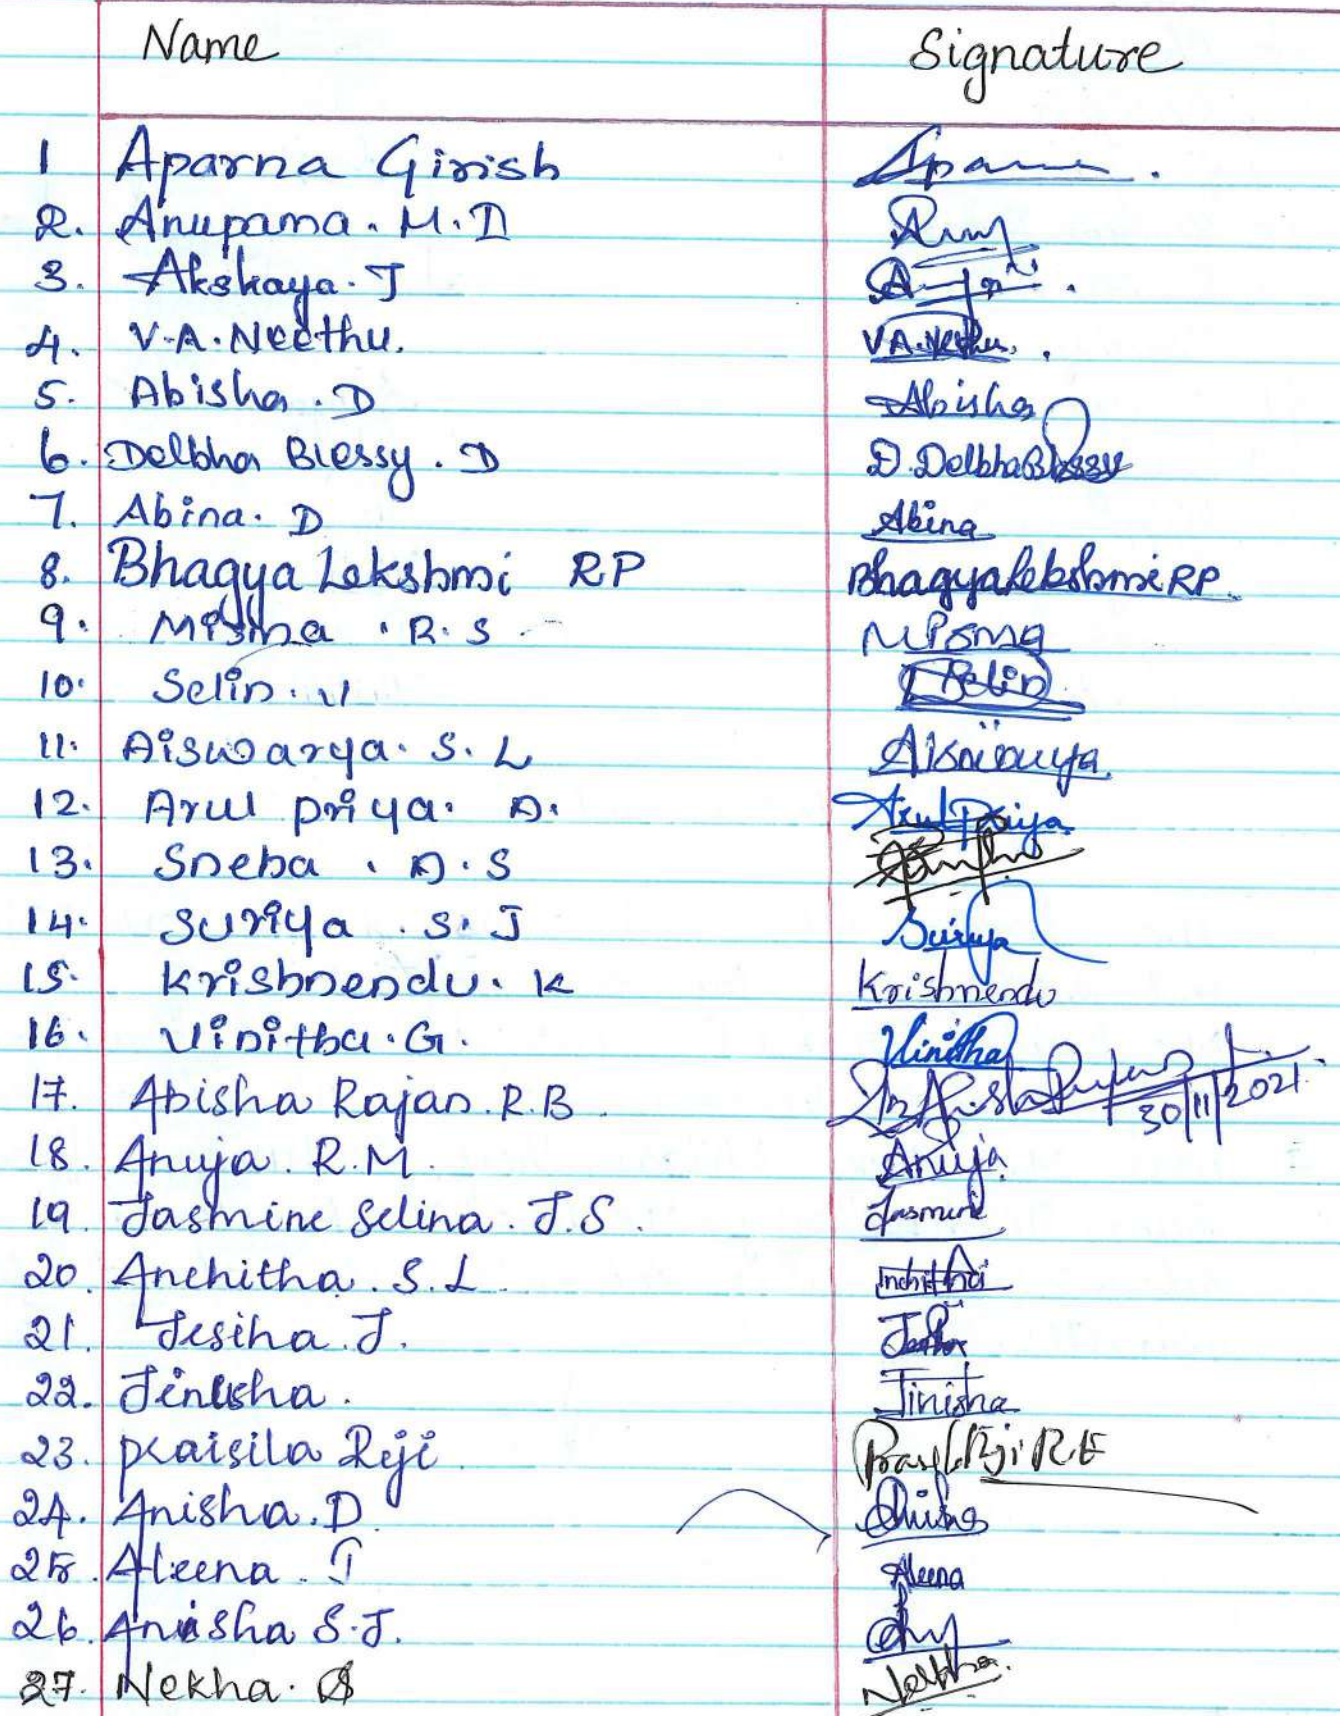 Name Signature
1 Aparna Girish Aparna.
2. Anupama. M. D
3. Akshaya. J
4. V.A. Neethu. V.A. Neethu.
5. Abisha. D Abisha
6. Delbha Blessy. D D. Delbha Blessy
7. Abina. D Abina
8. Bhagya Lekshmi RP Bhagya Lekshmi RP.
9. Misma. R. S Misma
10. Selin. V Selin
11. Aiswarya. S. L Aiswarya.
12. Arul priya. A. Arul Priya
13. Sneha. A. S
14. Suriya. S. J Suriya
15. Krishnendu. K Krishnendu
16. Vinitha. G. Vinitha
17. Abisha Rajan. R.B. 30/11/2021.
18. Anuja. R.M. Anuja
19. Jasmine Selina. J.S. Jasmine
20. Anchitha. S.L
21. Jesiha. J.
22. Jinisha. Jinisha
23. Praisila Reji
24. Anisha. D Anisha
25. Aleena. J Aleena
26. Anisha S.J.
27. Nekha. S Nekha.